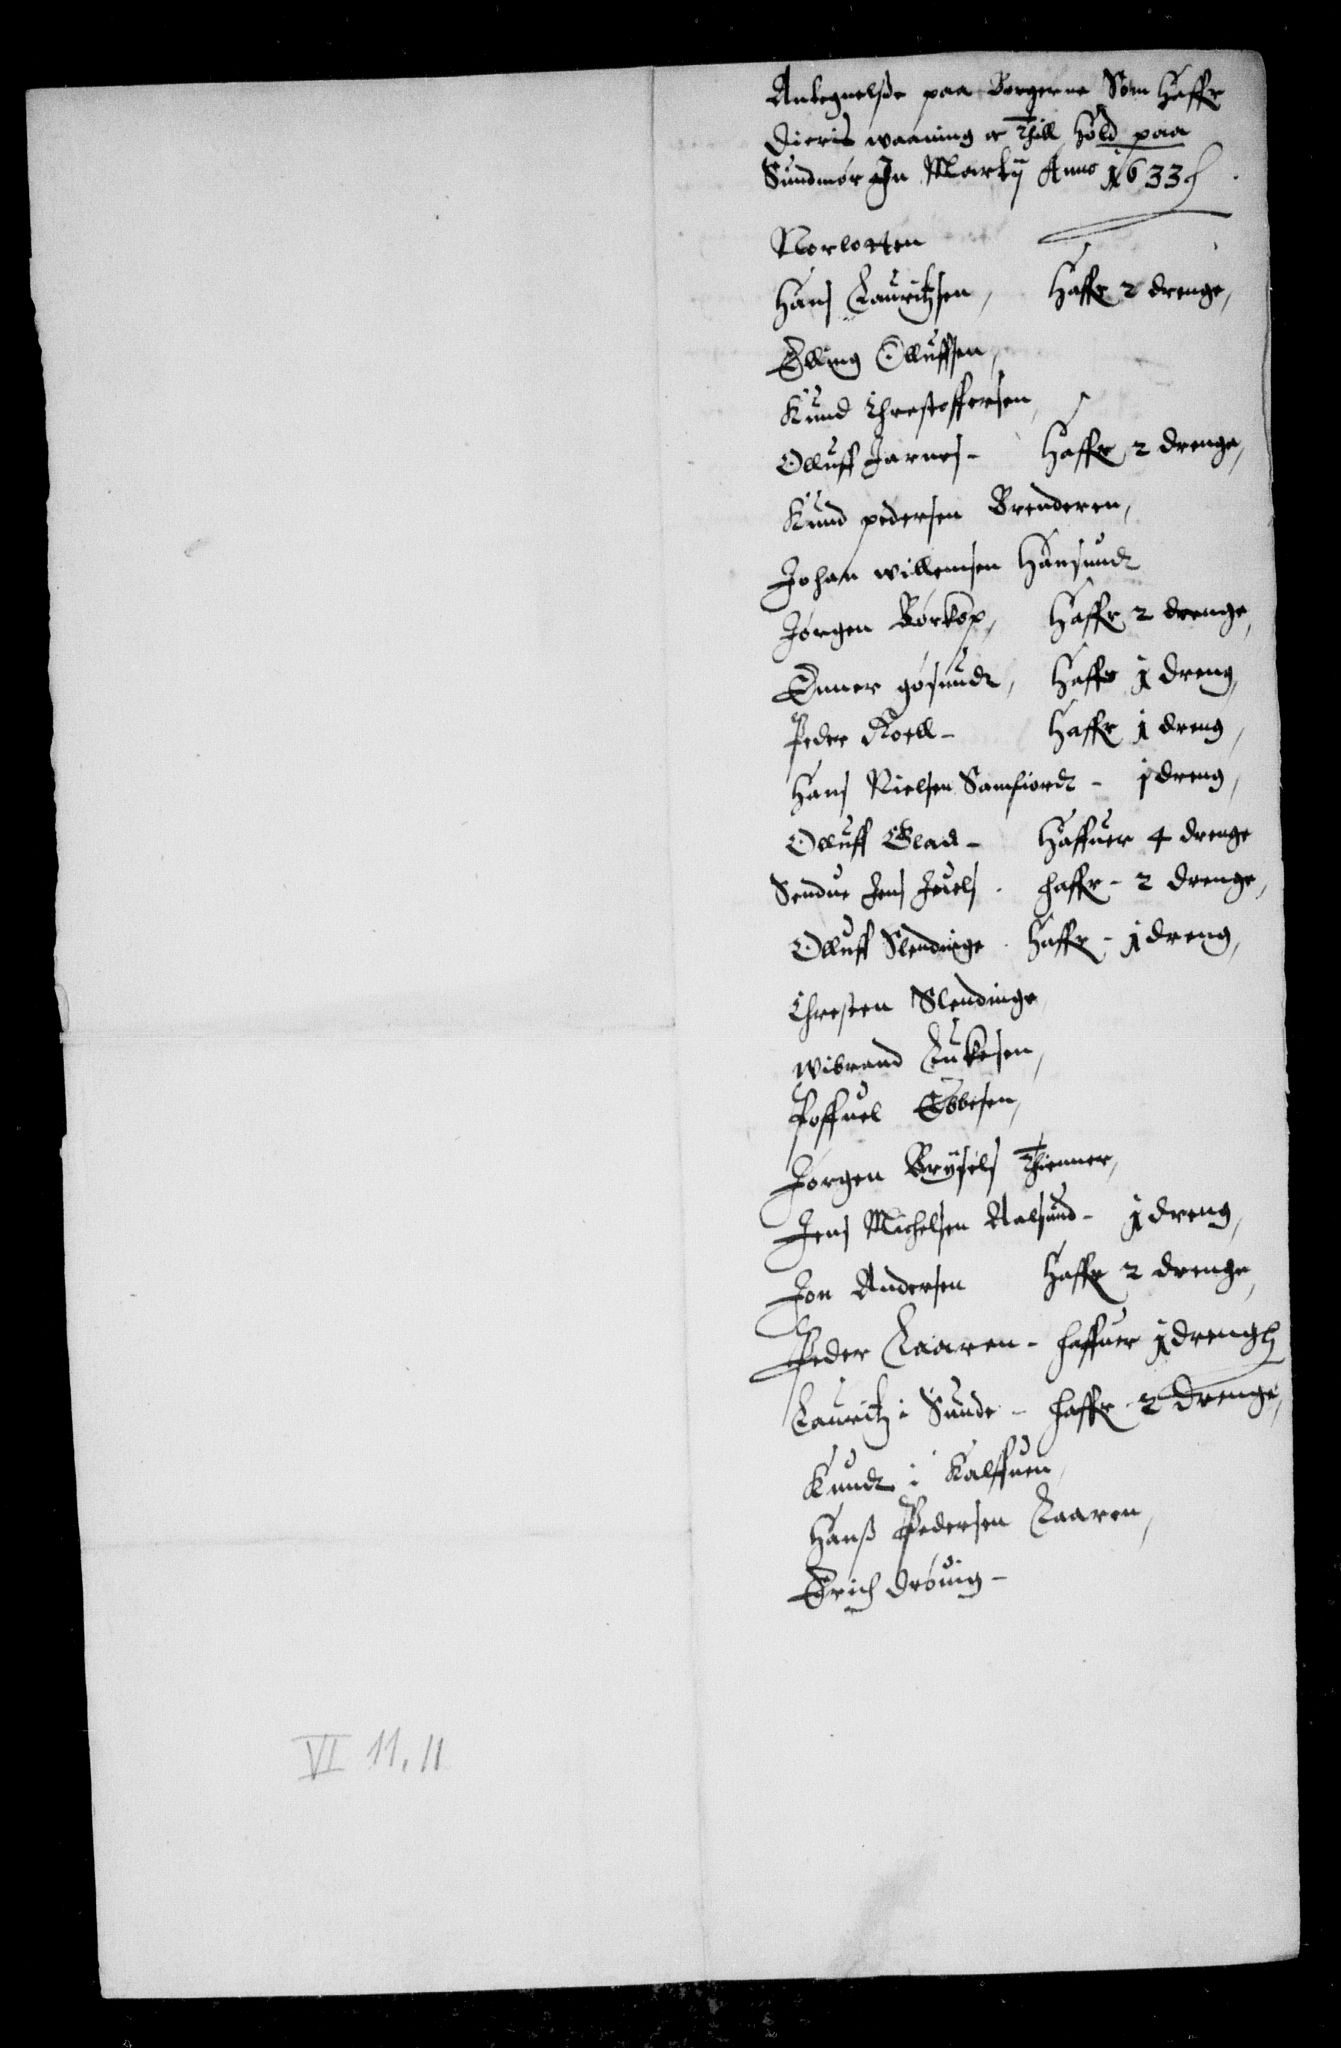 Antegnelsße paa Borgerne Som Haffr
dieris waaning & Thill Hold paa
Sundmør In Martij Anno 1633
Norlotten
Hans Lauritzsen, Haffr 2 drenge,
Elling Olluffsen,
Knud Chrestoffersen,
Olluff Jarnes - Haffr 2 drenge,
Knud pedersen Brenderen,
Johan willemsen Hansundt
Jørgen Børkop, Haffr 2 drenge,
Enner gøsundt, Haffr 1 dreng,
Peder Roell - Haffr 1 dreng,
Hans Nielsen Samfiordt - 1 dreng,
Olluff Glad - Haffuer 4 drenge
Sendue Jens Juels - haffr - 2 drenge,
Olluff Slendinge - Haffr - 1 dreng,
Chresten Slendinge,
wibrand Lukesen,
Poffuel Ebbesen,
Jørgen Brysels Thienner,
Jens Michelsen Aalsund - 1 dreng,
Jon Andersen Haffr 2 drenge,
Peder Laaren - haffuer 1 dreng
Lauritz i Sunde - haffr 2 drenge,
Knudt i Kalffuen,
Hanß Pedersen Laaren,
Erich drøuig -
VI 11, 11